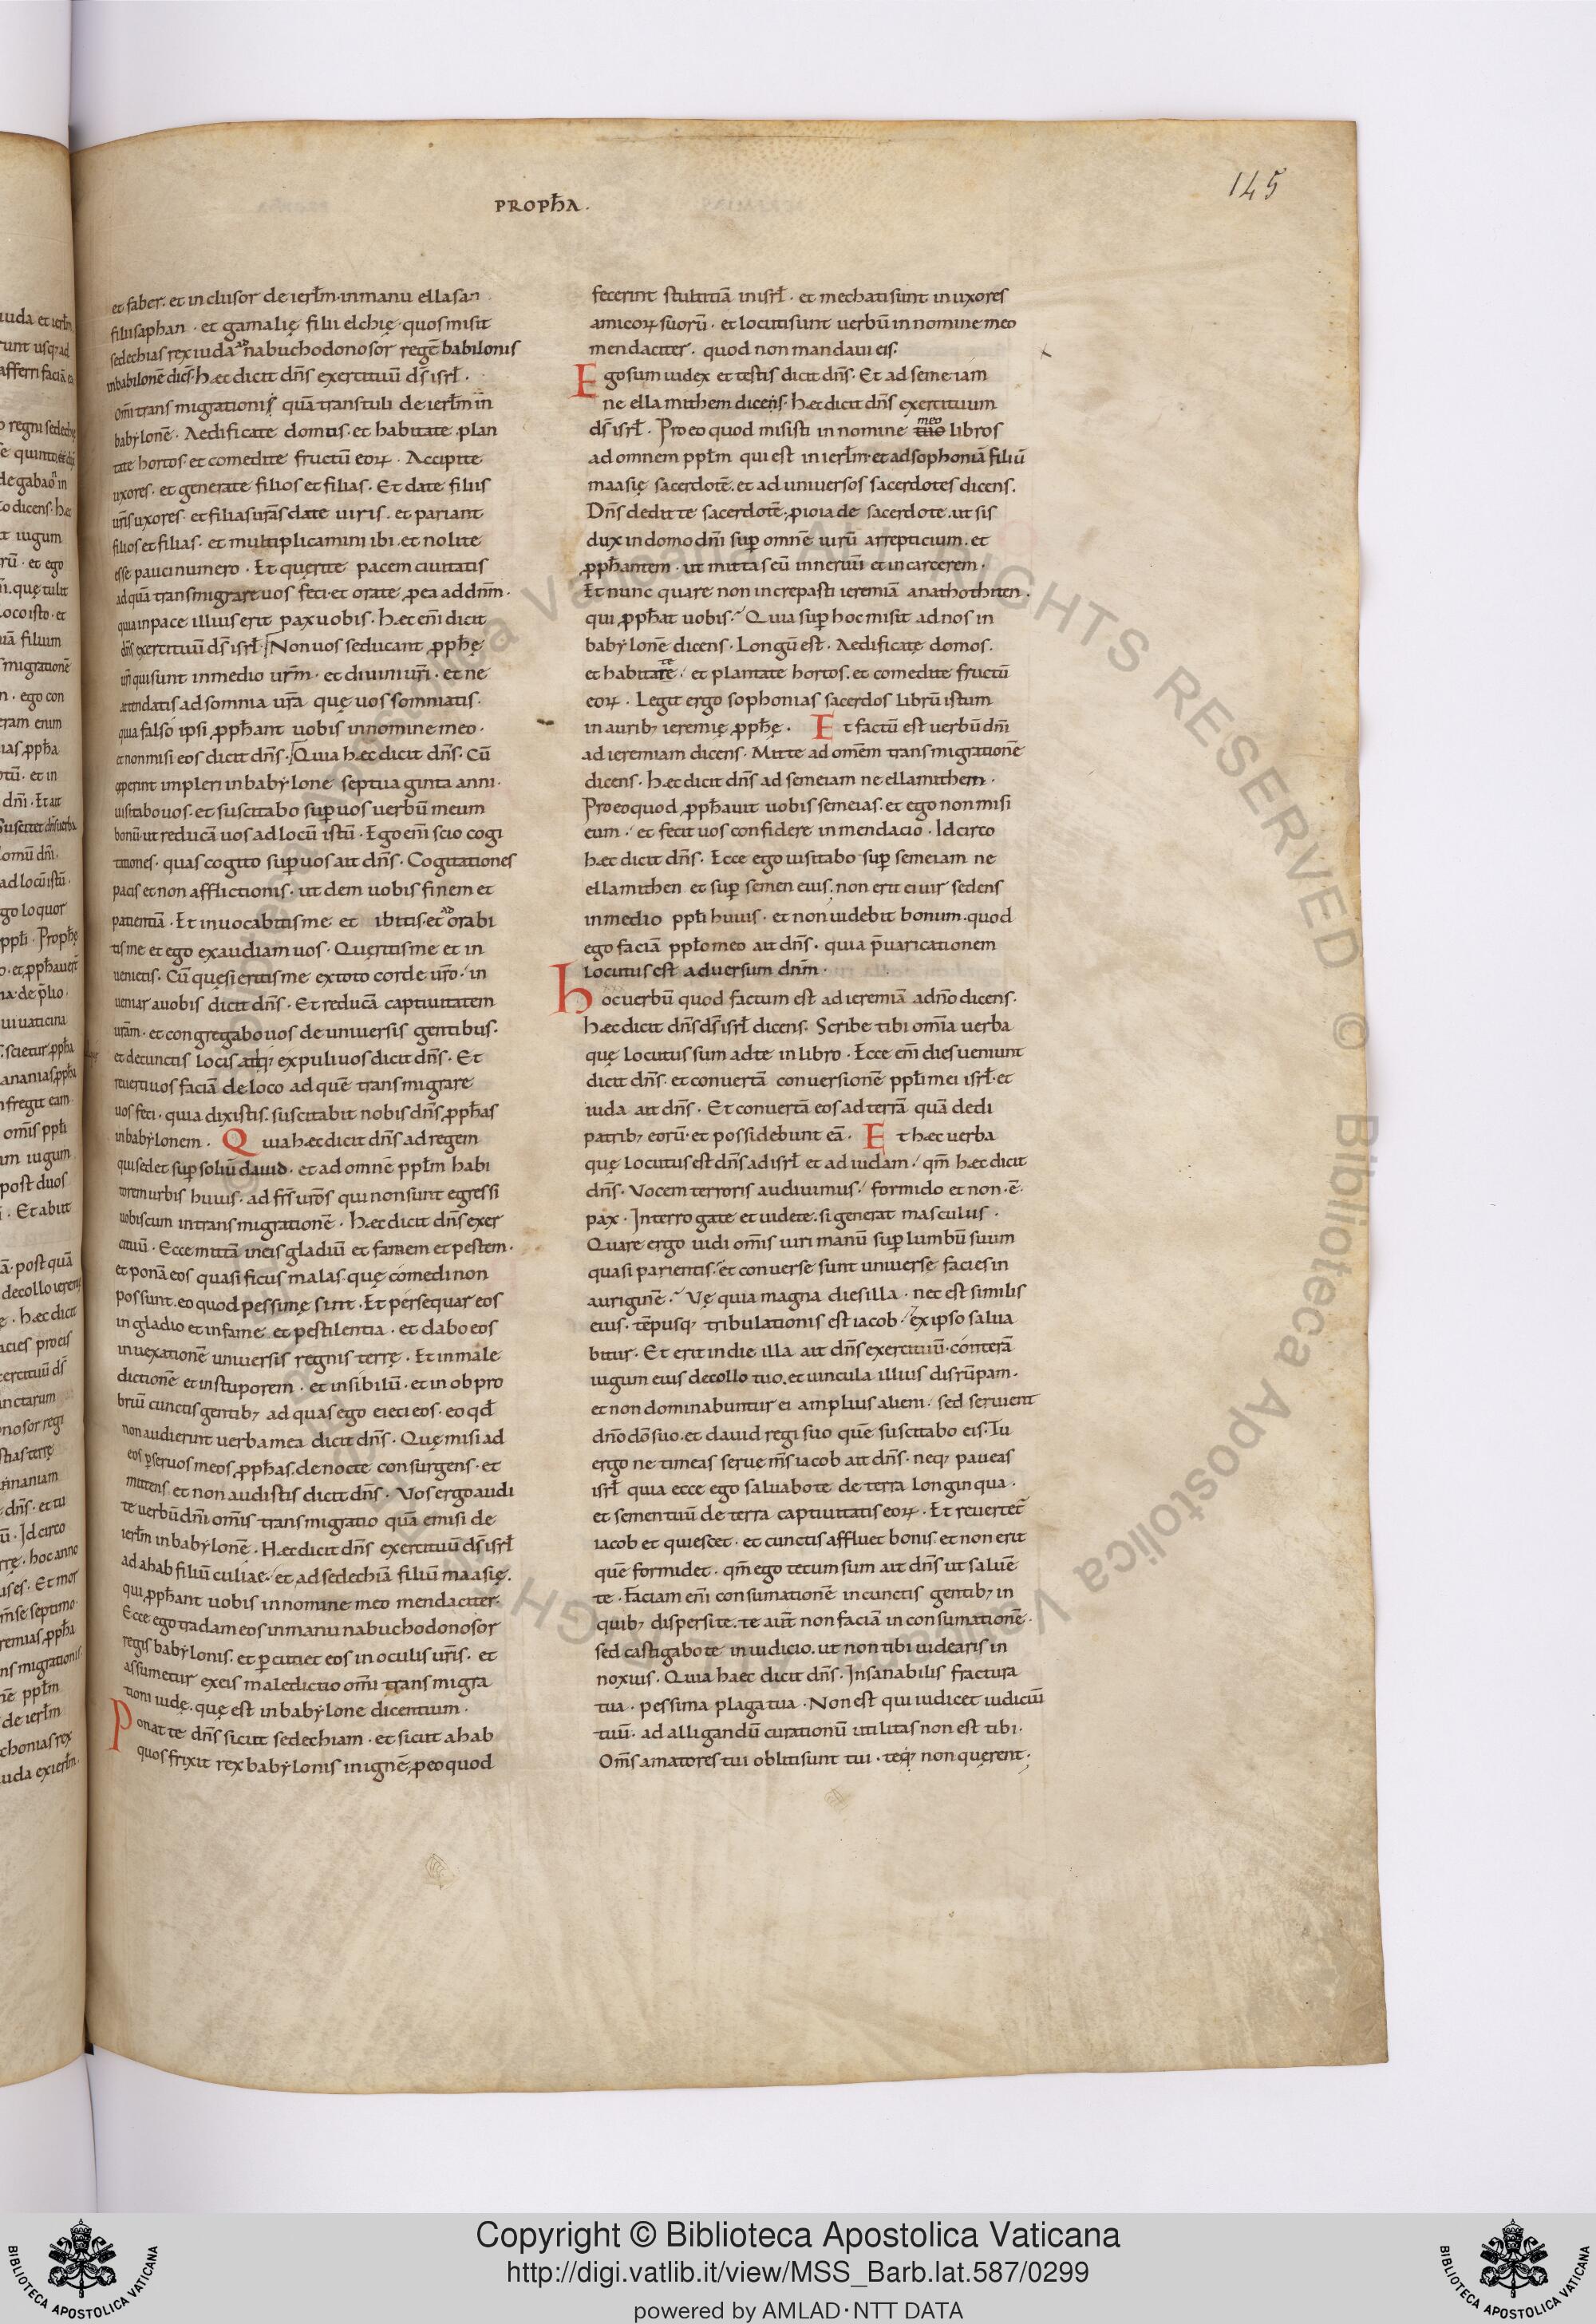 PROPħA.
145
et faber. et in clusor de ierłm. in manu ella san
filii saphan. et gamalię filii elchię. quos misit
sedechias rex iuda ad nabuchodonosor regē babilonis
in babilonē dicēs. hæc dicit dn̄s exercituū ds̄ isrł.
om̄i trans migrationi quā transtuli de ierłm in
babylonē. Aedificate domus. et habitate. plan
tate hortos. et comedite fructū eoꝝ. Accipite
uxores. et generate filios et filias. Et date filiis
ur̄is uxores. et filias ur̄as date uiris. et pariant
filios et filias. et multiplicamini ibi. et nolite
esse pauci numero. Et quęrite pacem ciuitatis
ad quā transmigrare uos feci. et orate ꝓ ea ad dn̄m.
quia in pace illius erit pax uobis. hæc eni̅ dicit
dn̄s exercituū ds̄ isrł. Non uos seducant ꝓpħę
ur̄i qui sunt in medio ur̄m. et diuini ur̄i. et ne
attendatis ad somnia ur̄a quę uos somniatis.
quia falso ipsi ꝓpħant uobis in nomine meo.
et non misi eos dicit dn̄s. Quia hæc dicit dn̄s. Cū
cęperint impleri in babylone septuaginta anni.
uisitabo uos. et suscitabo suꝑ uos uerbū meum
bonū. ut reducā uos ad locū istū. Ego eni̅ scio cogi
tationes. quas cogito suꝑ uos ait dn̄s. Cogitationes
pacis et non afflictionis. ut dem uobis finem et
patientiā. Et inuocabitis me et ibitis. et adorabi
tis me et ego exaudiam uos. Quęritis me et in
uenietis. Cū quęsieritis me ex toto corde ur̄o. in
ueniar a uobis dicit dn̄s. Et reducā captiuitatem
ur̄am. et congregabo uos de uniuersis gentibus.
et de cunctis locis ad que expuli uos dicit dn̄s. Et
reuerti uos faciā de loco ad quē transmigrare
uos feci. quia dixistis. suscitabit nobis dn̄s ꝓpħas
in babylonem. Quia hæc dicit dn̄s ad regem
qui sedet suꝑ soliū dauid. et ad omnē ppłm habi
torem urbis huius. ad fr̄s ur̄os qui non sunt egressi
uobiscum in trans migrationē. hæc dicit dn̄s exer
cituū. Ecce mittā in eis gladiū et famem et pestem.
et ponā eos quasi ficus malas. quę comedi non
possunt. eo quod pessimę sint. Et persequar eos
in gladio et in fame et pestilentia. et dabo eos
in uexationē uniuersis regnis terrę. Et in male
dictionē et in stuporem. et in sibilū. et in obpro
briū cunctis gentibꝫ ad quas ego eieci eos. eo qđ
non audierint uerba mea dicit dn̄s. Quę misi ad
eos ꝑ seruos meos ꝓpħas. de nocte consurgens. et
mittens. et non audistis dicit dn̄s. Vos ergo audi
te uerbū dn̄i om̄is transmigratio quā emisi de
ierłm in babylonē. Hæc dicit dn̄s exercituū ds̄ isrł
ad ahab filiū culiae. et ad sedechiā filiū maasię.
qui ꝓpħant uobis in nomine meo mendaciter.
Ecce ego tradam eos in manu nabuchodonosor
regis babylonis. et ꝑcutiet eos in oculis ur̄is. et
assumetur ex eis maledictio om̄i transmigra
tioni iudę. quę est in babylone dicentium.
Ponat te dn̄s sicut sedechiam. et sicut ahab
quos frixit rex babylonis in ignē. ꝓ eo quod
fecerint stultitiā in isrł. et mechati sunt in uxores
amicoꝝ suorū. et locuti sunt uerbū in nomine meo
mendaciter. quod non mandaui eis.
Ego sum iudex et testis dicit dn̄s. Et ad semeiam
ne ella mithem dicens. hæc dicit dn̄s exercituum
ds̄ isrł. Pro eo quod misisti in nomine tuo meo libros
ad omnem ppłm qui est in ierłm. et ad sophoniā filiū
maasię sacerdotē. et ad uniuersos sacerdotes dicens.
Dn̄s dedit te sacerdotē. ꝓ ioiade sacerdote. ut sis
dux in domo dn̄i suꝑ omnē uirū arrepticium. et
ꝓpħantem. ut mittas eū in neruū et in carcerem.
Et nunc quare non increpasti ieremiā anathothiten.
qui ꝓpħat uobis. Quia suꝑ hoc misit ad nos in
babylonē dicens. Longū est. Aedificate domos.
et habitare te. et plantate hortos. et comedite fructū
eoꝝ. Legit ergo sophonias sacerdos librū istum
in auribꝫ ieremię ꝓpħę. Et factū est uerbū dn̄i
ad ieremiam dicens. Mitte ad omēm transmigrationē
dicens. hæc dicit dn̄s ad semeiam ne ellamithem.
Pro eo quod ꝓpħauit uobis semeias. et ego non misi
eum. et fecit uos confidere in mendacio. Idcirco
hæc dicit dn̄s. Ecce ego uisitabo suꝑ semeiam ne
ellamithen et suꝑ semen eius. non erit ei uir sedens
in medio ppłi huius. et non uidebit bonum. quod
ego faciā ppło meo ait dn̄s. quia p̄uaricationem
locutus est aduersum dn̄m.
hoc uerbū quod factum est ad ieremiā a dn̄o dicens.
hæc dicit dn̄s ds̄ isrł dicens. Scribe tibi om̄ia uerba
quę locutus sum ad te in libro. Ecce eni̅ dies ueniunt
dicit dn̄s. et conuertā conuersionē ppłi mei isrł. et
iuda ait dn̄s. Et conuertā eos ad terrā quā dedi
patribꝫ eorū. et possidebunt eā. Et hæc uerba
quę locutus est dn̄s ad isrł et ad iudam. qm̄ hæc dicit
dn̄s. Vocem terroris audiuimus. formido et non .ē.
pax. Interrogate et uidete. si generat masculus.
Quare ergo uidi om̄is uiri manū suꝑ lumbū suum
quasi parientis. et conuerse sunt uniuerse facies in
auriginē. Vę quia magna dies illa. nec est similis
eius. tēpusqꝫ tribulationis est iacob. et ex ipso salua
bitur. Et erit in die illa ait dn̄s exercituū. conterā
iugum eius de collo tuo. et uincula illius disrūpam.
et non dominabuntur ei amplius alieni. sed seruient
dn̄o dō suo. et dauid regi suo quē suscitabo eis. Tu
ergo ne timeas serue m̄s iacob ait dn̄s. neqꝫ paueas
isrł quia ecce ego saluabo te de terra longinqua.
et semen tuū de terra captiuitatis eoꝝ. Et reuertet̄
iacob et quiescet. et cunctis affluet bonis. et non erit
quē formidet. qm̄ ego tecum sum ait dn̄s ut saluē
te. Faciam eni̅ consumationē in cunctis gentibꝫ in
quibꝫ dispersi te. te aut̄ non faciā in consumationē.
sed castigabo te in iudicio. ut non tibi uidearis in
noxius. Quia haec dicit dn̄s. Insanabilis fractura
tua. pessima plaga tua. Non est qui iudicet iudiciū
tuū. ad alligandū curationū utilitas non est tibi.
Om̄s amatores tui obliti sunt tui. teqꝫ non quęrent.
Copyright © Biblioteca Apostolica Vaticana
http://digi.vatlib.it/view/MSS_Barb.lat.587/0299
powered by AMLAD·NTT DATA
BIBLIOTECA APOSTOLICA VATICANA
BIBLIOTECA APOSTOLICA VATICANA